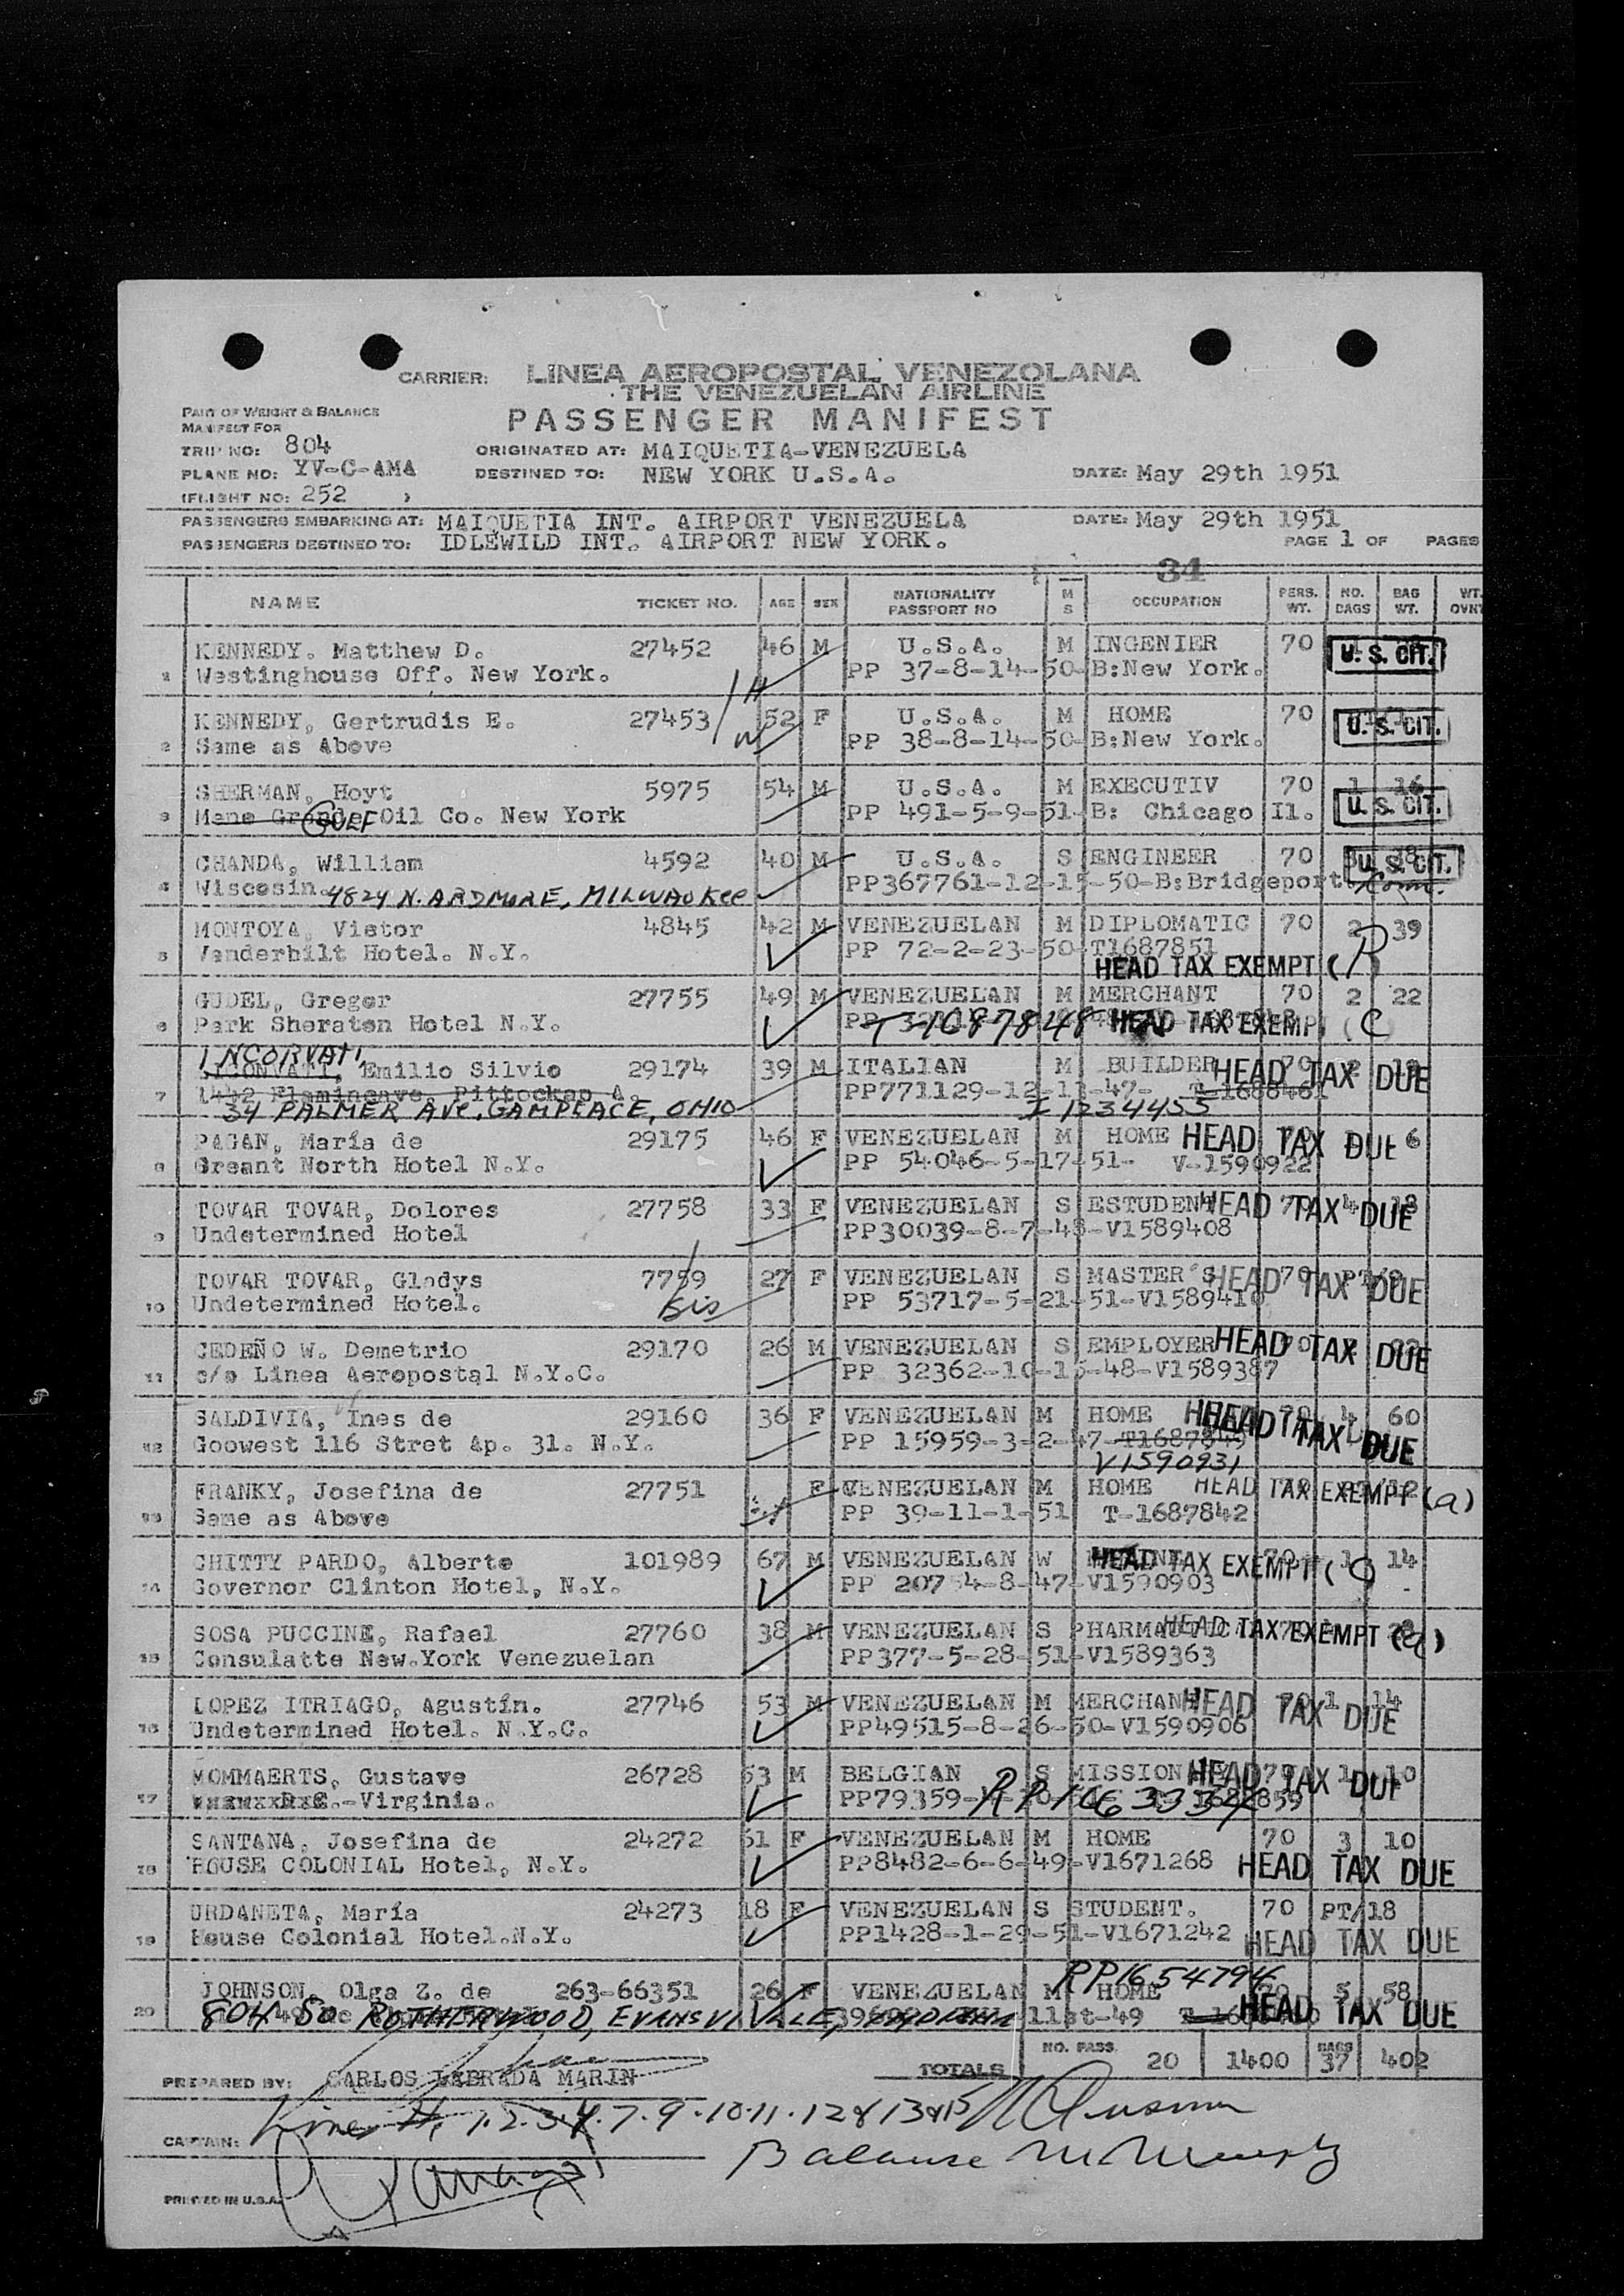 CARRIER: LINEA AEROPOSTAL VENEZOLANA
THE VENEZUELAN AIRLINE
PASSENGER MANIFEST
PART OF WEIGHT & BALANCE
MANIFEST FOR
TRIP NO: 804
PLANE NO: YV-C-AMA
(FLIGHT NO: 252 )
ORIGINATED AT: MAIQUETIA-VENEZUELA
DESTINED TO: NEW YORK U.S.A.
DATE: May 29th 1951
PASSENGERS EMBARKING AT: MAIQUETIA INT. AIRPORT VENEZUELA DATE: May 29th 1951
PASSENGERS DESTINED TO: IDLEWILD INT. AIRPORT NEW YORK. PAGE 1 OF PAGES
34
NAME TICKET NO. AGE SEX NATIONALITY PASSPORT NO M S OCCUPATION PERS. WT. NO. BAGS BAG WT. WT.
KENNEDY. Matthew D. 27452 46 M U.S.A. M INGENIER 70 U. S. CIT.
1 Westinghouse Off. New York. PP 37-8-14-50-B:New York.
H
KENNEDY, Gertrudis E. 27453 52 F U.S.A. M HOME 70 U. S. CIT.
2 Same as Above W PP 38-8-14-50-B:New York.
SHERMAN, Hoyt 5975 54 M U.S.A. M EXECUTIV 70 1 16
3 Mene Grande GULF Oil Co. New York PP 491-5-9-51-B: Chicago Il. U. S. CIT.
CHANDA, William 4592 40 M U.S.A. S ENGINEER 70 U. S. CIT.
4 Wiscosin. 4824 N. ARDMORE, MILWAUKEE PP367761-12-15-50-B:Bridgeport. Conn.
MONTOYA, Victor 4845 42 M VENEZUELAN M DIPLOMATIC 70 2 39
5 Vanderbilt Hotel. N.Y. PP 72-2-23-50-T1687851
HEAD TAX EXEMPT (
GUDEL, Gregor 27755 49 M VENEZUELAN M MERCHANT 70 2 22
6 Park Sheraton Hotel N.Y. PP T-1087848 HEAD TAX EXEMPT (C
INCORVATI
Emilio Silvio 29174 39 M ITALIAN M BUILDER 70 HEAD TAX DUE
7 1442 PP771129-12-11-47- T-1688461
34 PALMER AVE, CAMPEACE, OHIO I 1234455
PAGAN, María de 29175 46 F VENEZUELAN M HOME HEAD TAX DUE 6
8 Greant North Hotel N.Y. PP 54046-5-17-51- V-1590922
TOVAR TOVAR, Dolores 27758 33 F VENEZUELAN S ESTUDENT HEAD TAX DUE
9 Undetermined Hotel PP30039-8-7-48-V1589408
TOVAR TOVAR, Gladys 7759 27 F VENEZUELAN S MASTER'S 70 HEAD TAX DUE
10 Undetermined Hotel. Sis PP 53717-5-21-51-V1589410
CEDEÑO W. Demetrio 29170 26 M VENEZUELAN S EMPLOYER HEAD TAX DUE
11 c/o Linea Aeropostal N.Y.C. PP 32362-10-15-48-V1589387
SALDIVIA, Ines de 29160 36 F VENEZUELAN M HOME 4 60
12 Goowest 116 Stret Ap. 31. N.Y. PP 15959-3-2-47-T1687849 HEAD TAX DUE
V1590931
FRANKY, Josefina de 27751 F VENEZUELAN M HOME HEAD TAX EXEMPT (a)
13 Same as Above PP 39-11-1-51 T-1687842
CHITTY PARDO, Alberto 101989 67 M VENEZUELAN W 70 1 14
HEAD TAX EXEMPT (C)
14 Governor Clinton Hotel, N.Y. PP 20754-8-47-V1590903
SOSA PUCCINE, Rafael 27760 38 M VENEZUELAN S HEAD TAX EXEMPT (a)
15 Consulatte New.York Venezuelan PP377-5-28-51-V1589363
LOPEZ ITRIAGO, Agustín. 27746 53 M VENEZUELAN M MERCHANT 70 1 14 HEAD TAX DUE
16 Undetermined Hotel. N.Y.C. PP49515-8-26-50-V1590906
MOMMAERTS, Gustave 26728 53 M BELGIAN S 70 1 10 HEAD TAX DUE
17 -Virginia. PP79359- RP1663334
SANTANA, Josefina de 24272 51 F VENEZUELAN M HOME 70 3 10
18 HOUSE COLONIAL Hotel, N.Y. PP8482-6-6-49-V1671268 HEAD TAX DUE
URDANETA, María 24273 18 F VENEZUELAN S STUDENT. 70 PT/18
19 House Colonial Hotel.N.Y. PP1428-1-29-51-V1671242 HEAD TAX DUE
RP1654794
JOHNSON, Olga Z. de 263-66351 26 F VENEZUELAN M HOME 70 5 58
20 804 So ROTHERWOOD, EVANSVILLE, INDIANA 11st-49 HEAD TAX DUE
TOTALS NO. PASS. 20 1400 BAGS 37 402
PREPARED BY: CARLOS LABRADA MARIN
Lines 1.2.3.4.7.9.10.11.12&13&15
CAPTAIN:
Balance
PRINTED IN U.S.A.